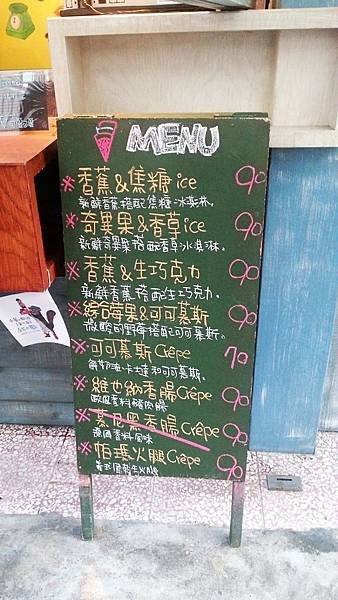 MENU
※香蕉&焦糖ice 90
新鮮香蕉搭配焦糖冰淇淋。
※奇異果&香草ice 90
新鮮奇異果搭配香草冰淇淋。
※香蕉&生巧克力 90
新鮮香蕉搭配生巧克力。
※綜合莓果&可可慕斯 90
微酸的野莓搭配可可慕斯。
※可可慕斯Crêpe 70
卡士達和可可慕斯。
※維也納香腸Crêpe 90
歐風香料豬肉腸
※慕尼黑香腸Crêpe 90
德國香料風味
※帕瑪火腿Crêpe 90